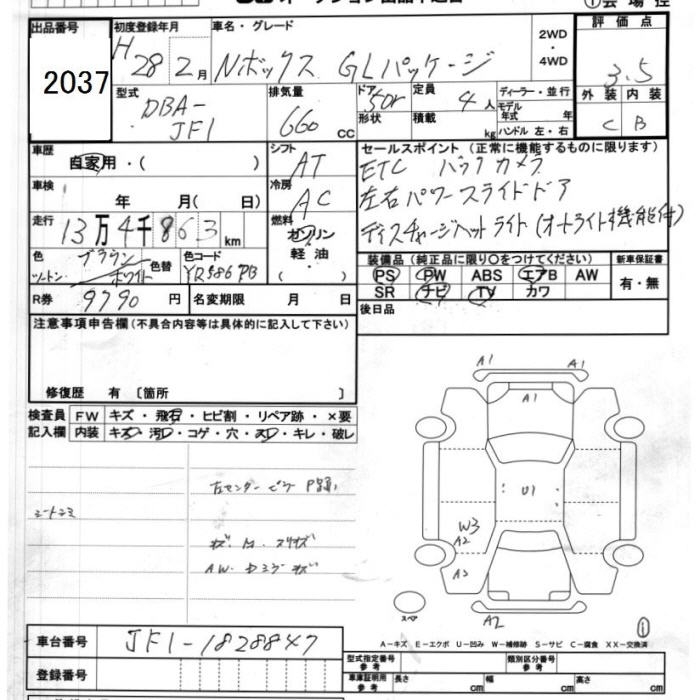 オークション出品申込書
出品番号
2037
初度登録年月
H 28 2月
車名・グレード
Nボックス GLパッケージ
2WD
・
4WD
評価点
3.5
外装 内装
C B
型式
DBA-
JF1
排気量
660 CC
ドア 5Dr
形状
定員 4人
積載 kg
ディーラー・並行
モデル年式 年
ハンドル 左・右
車歴
自家用・( )
シフト
AT
セールスポイント(正常に機能するものに限ります)
ETC バックカメラ
左右パワースライドドア
ディスチャージヘッドライト(オートライト機能付)
車検
年 月( 日)
冷房
AC
走行
13万4千863km
燃料
ガソリン
軽油・
( )
色
ブラウン
ツートン ホワイト
色替
色コード
YR586PB
装備品(純正品に限り○をつけてください)
PS PW ABS エアB AW
SR ナビ TV カワ
新車保証書
有・無
R券 9790円
名変期限 月 日
後日品
注意事項申告欄(不具合内容等は具体的に記入して下さい)
修復歴 有 〔箇所 〕
検査員
記入欄
FW キズ・飛石・ヒビ割・リペア跡・×要
内装 キズ・汚レ・コゲ・穴・スレ・キレ・破レ
左センターピラー
シートシミ
AW
A1 A1
A1
U1
W3
A2
A3
A2
スペア
A-キズ E-エクボ U-凹み W-補修跡 S-サビ C-腐食 XX-交換済
車台番号 JF1-1828847
登録番号
型式指定番号
類別区分番号
車庫証明用
参考
長さ cm
幅 cm
高さ cm
参考